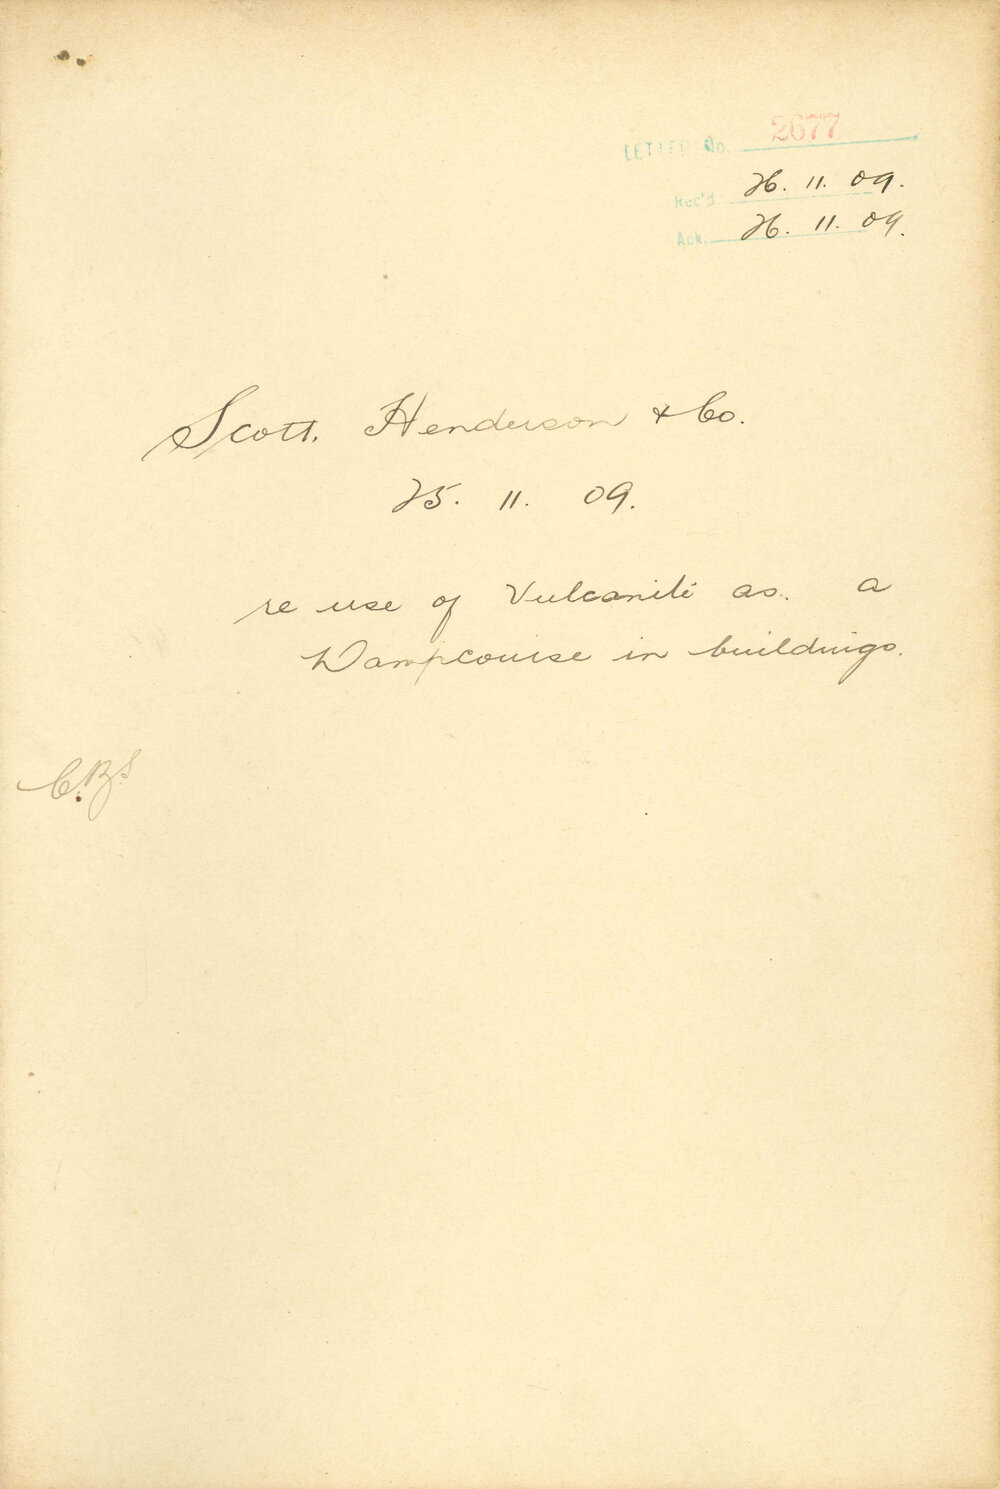 LETTER No. 2677
Rec'd 26. 11. 09.
Ack. 26. 11. 09.
Scott, Henderson & Co.
25. 11. 09.
re use of Vulcanite as. a
Dampcourse in buildings.
C.B.S